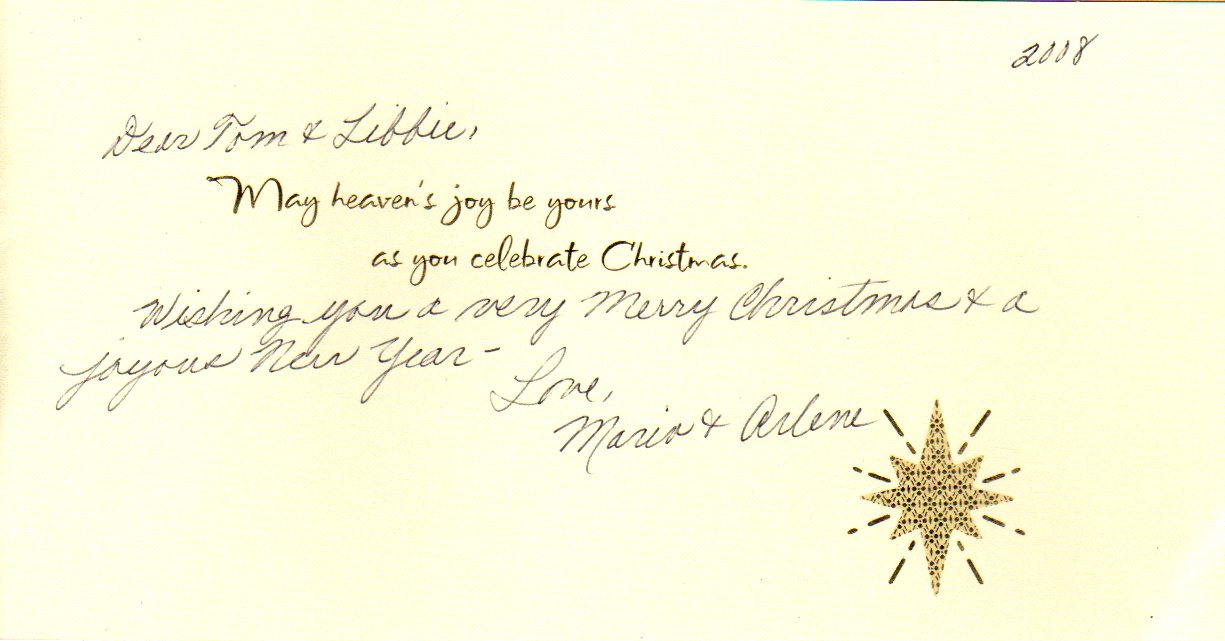 2008
Dear Tom & Libbie,
May heaven's joy be yours
as you celebrate Christmas.
Wishing you a very Merry Christmas & a
joyous New Year -
Love,
Mario & Arlene